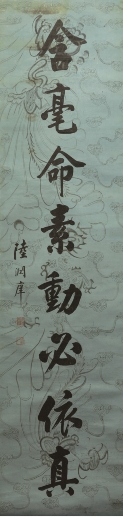 含毫命素動必依真
陸潤庠